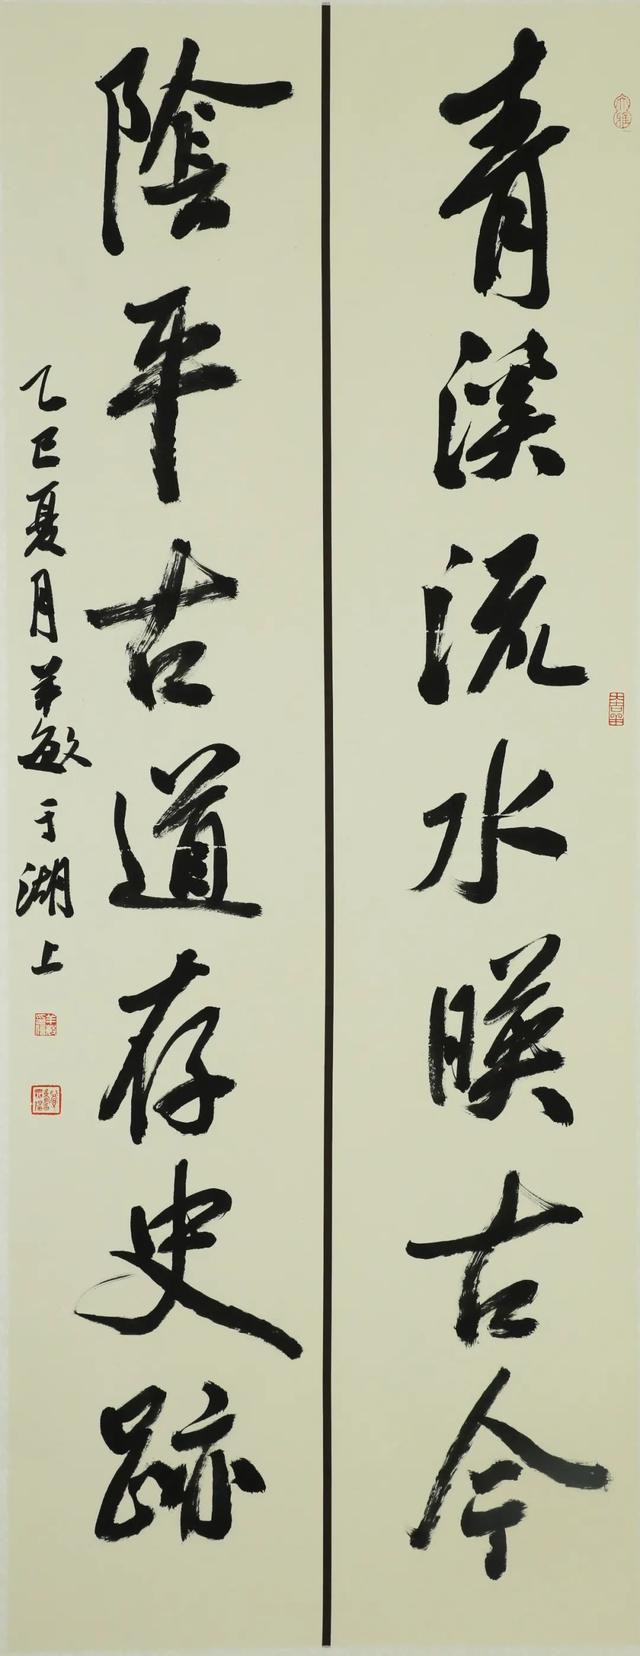 青溪流水暎古今
陰平古道存史跡
乙巳夏月羊敏于湖上